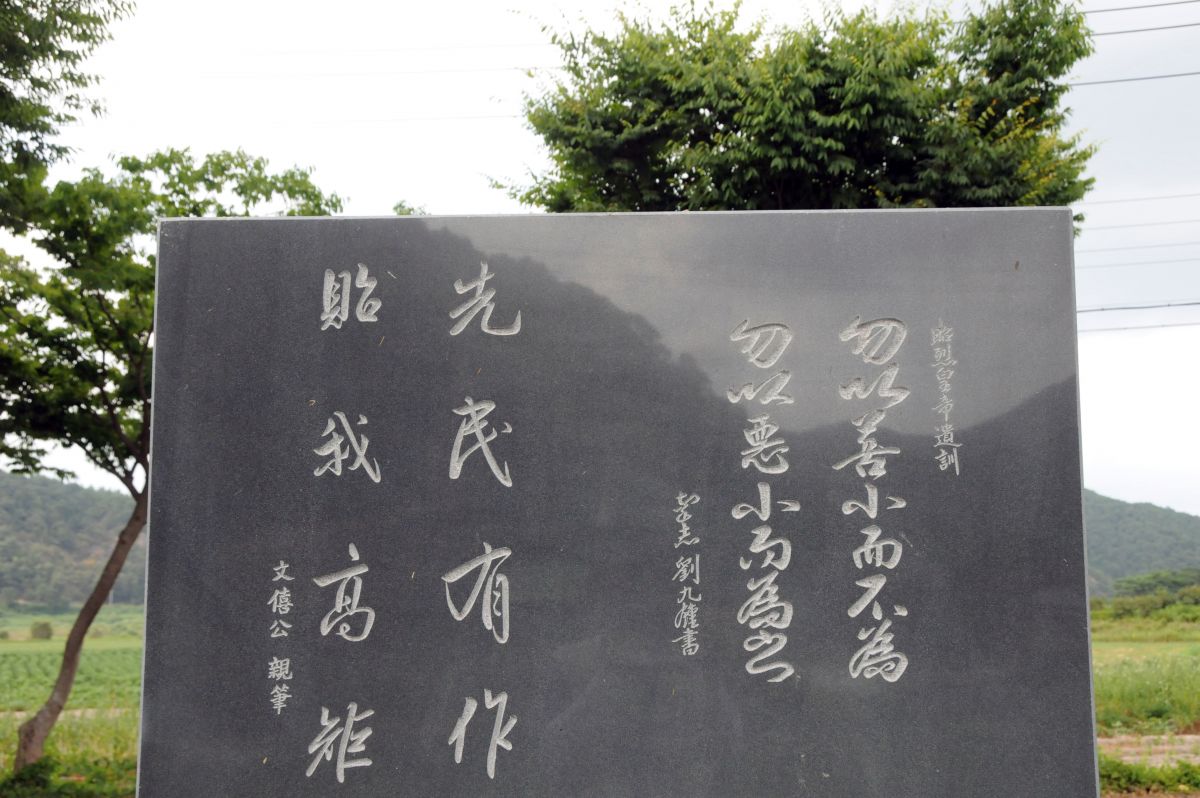 昭烈皇帝遺訓
勿以善小而不為
勿以悪小而為之
志 劉九 書
先民有作
貽我高矩
文僖公 親筆